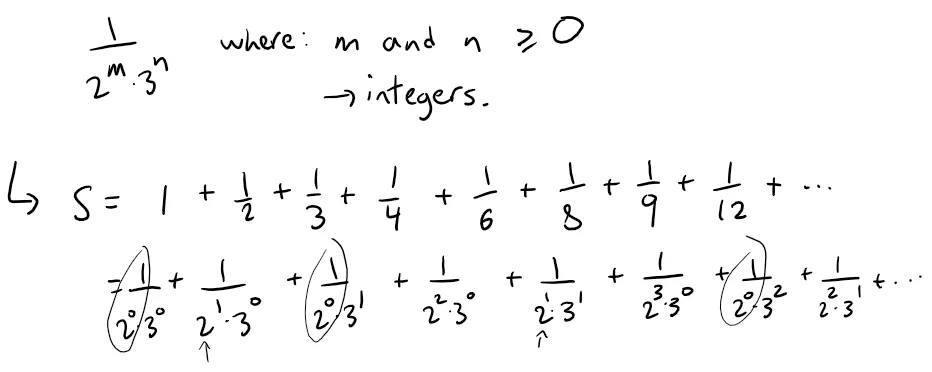 1/(2^m · 3^n) where: m and n ≥ 0
→ integers.
↳ S = 1 + 1/2 + 1/3 + 1/4 + 1/6 + 1/8 + 1/9 + 1/12 + ...
= 1/(2^0 · 3^0) + 1/(2^1 · 3^0) + 1/(2^0 · 3^1) + 1/(2^2 · 3^0) + 1/(2^1 · 3^1) + 1/(2^3 · 3^0) + 1/(2^0 · 3^2) + 1/(2^2 · 3^1) + ...